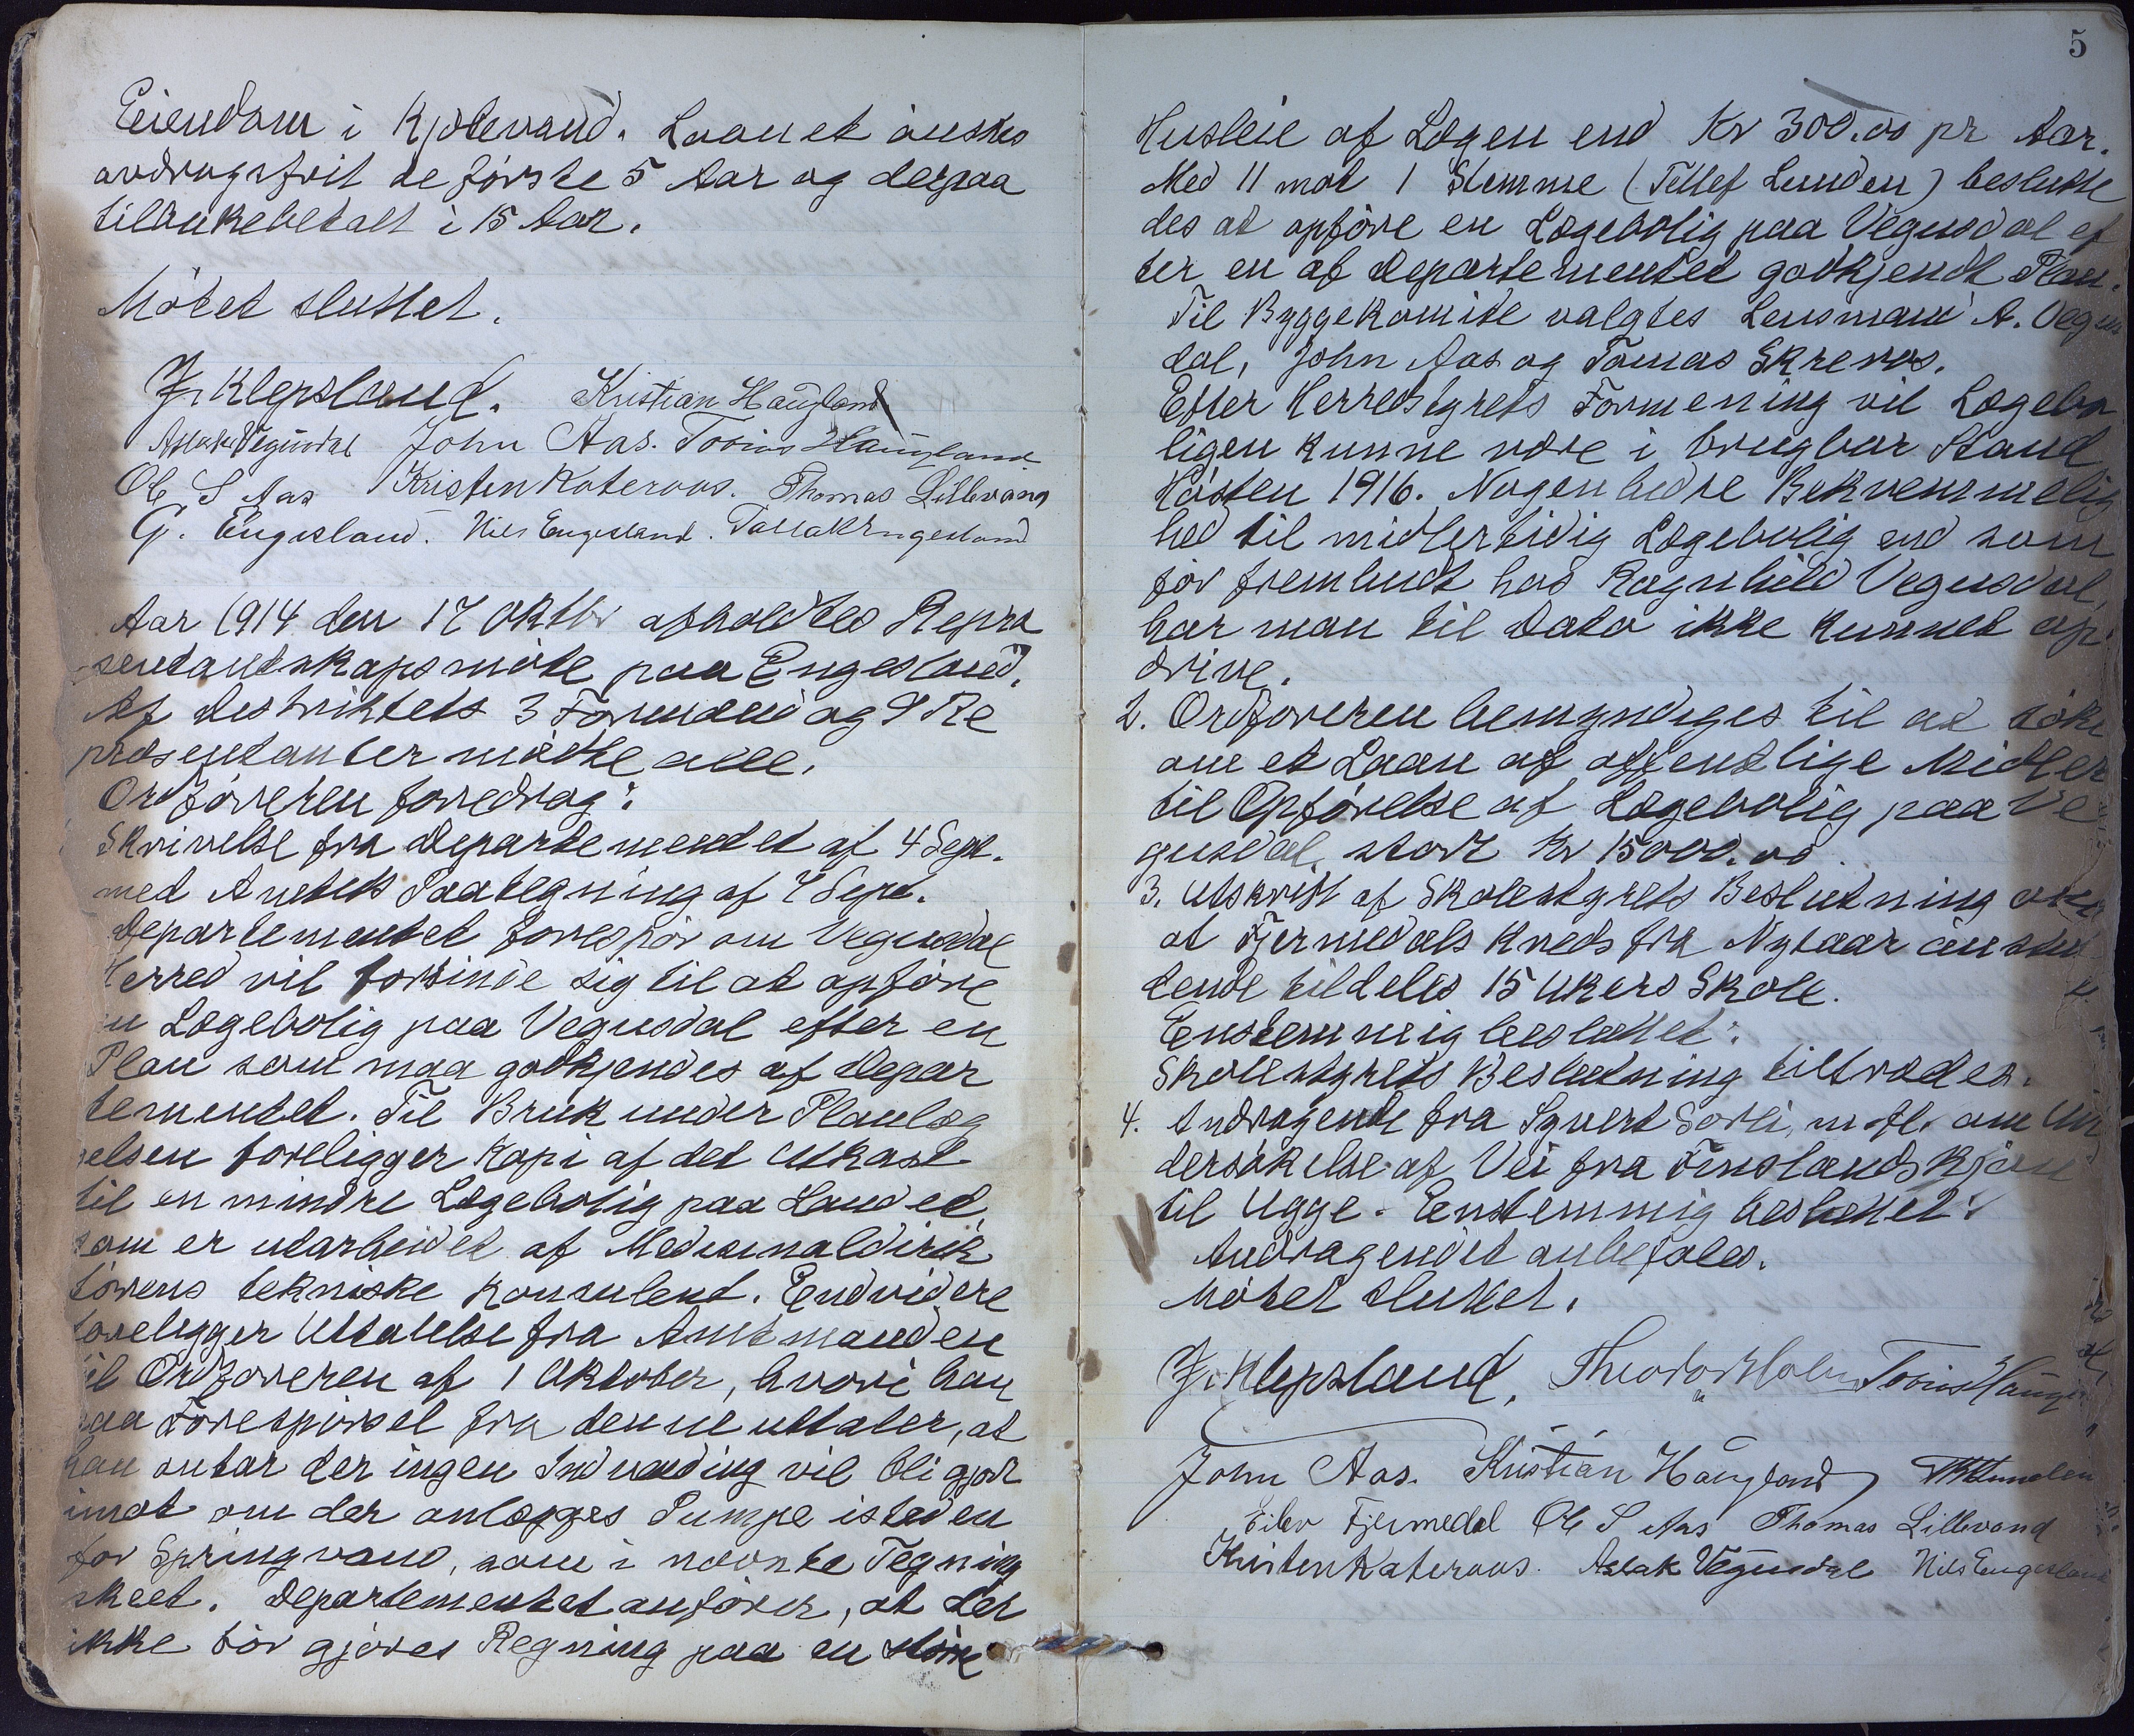 Eiendom i Kjolevand. Laanet önskes
avdragsfrit de förste 5 Aar og derpaa
tilbakebetalt i 15 Aar.
Mötet sluttet.
J. Klepsland. Kristian Haugland
Aslak Vegusdal John Aas. Tobias Haugland
Ole S Aas Kristen Kateraas. Thomas Lillevand
G. Engesland. Nils Engesland. Tallak Engesland
Aar 1914 den 17 Oktbr afholdtes Repræ
sentantskapsmöte paa Engesland.
Af Distriktets 3 Formænd og 9 Re
præsentanter mödte alle.
Ordföreren foredrog:
Skrivelse fra Departementet af 4 Sept.
med Amtets Paategning af 7 Sept.
Departementet forespör om Vegusdal
Herred vil forbinde sig til at opföre
en Lægebolig paa Vegusdal efter en
Plan som maa godkjendes af Depar
tementet. Til Bruk under Planlæg
gelsen foreligger Kopi af det Utkast
til en mindre Lægebolig paa Landet
som er utarbeidet af Medicinaldirek
törens tekniske Konsulent. Endvidere
foreligger Uttalelse fra Amtmanden
til Ordföreren af 1 Oktober, hvori han
paa Forespörsel fra denne uttaler, at
han antar der ingen Indvending vil bli gjort
imot om der anlægges Pumpe isteden
for Springvand, som i nævnte Tegning
skeet. Departementet anförer, at der
ikke bör gjöres Regning paa en större
5
Husleie af Lægen end Kr 300.00 pr Aar.
Med 11 mot 1 Stemme (Tellef Lunden) beslutte
des at opföre en Lægebolig paa Vegusdal ef
ter en af Departementet godkjendt Plan.
Til Byggekomite valgtes Lensmand A. Vegus
dal, John Aas og Tomas Skreros.
Efter Herredstyrets Formening vil Lægebo
ligen kunne være i brugbar Stand
Hösten 1916. Nogen bedre Bekvemmelig
hed til midlertidig Lægebolig end som
för frembudt hos Ragnhild Vegusdal,
har man til Dato ikke kunnet op
drive.
2. Ordföreren bemyndiges til at söke
om et Laan af offentlige Midler
til Opförelse af Lægebolig paa Ve
gusdal, stort Kr 15000.00.
3. Utskrift af Skolestyrets Beslutning om
at Fjermedals Kreds fra Nytaar
tende tildeles 15 Ukers Skole.
Enstemmig besluttet:
Skolestyrets Beslutning tiltrædes.
4. Andragende fra Syvert Sorli, m. fl. om Un
dersökelse af Vei fra Finslands Kjön
til Ugge. Enstemmig besluttet:
Andragendet anbefales.
Mötet sluttet.
J. Klepsland, Theodor Holm Tobias Haugland
John Aas. Kristian Haugland
Eilev Fjermedal Ole S Aas Thomas Lillevand
Kristen Kateraas. Aslak Vegusdal Nils Engesland